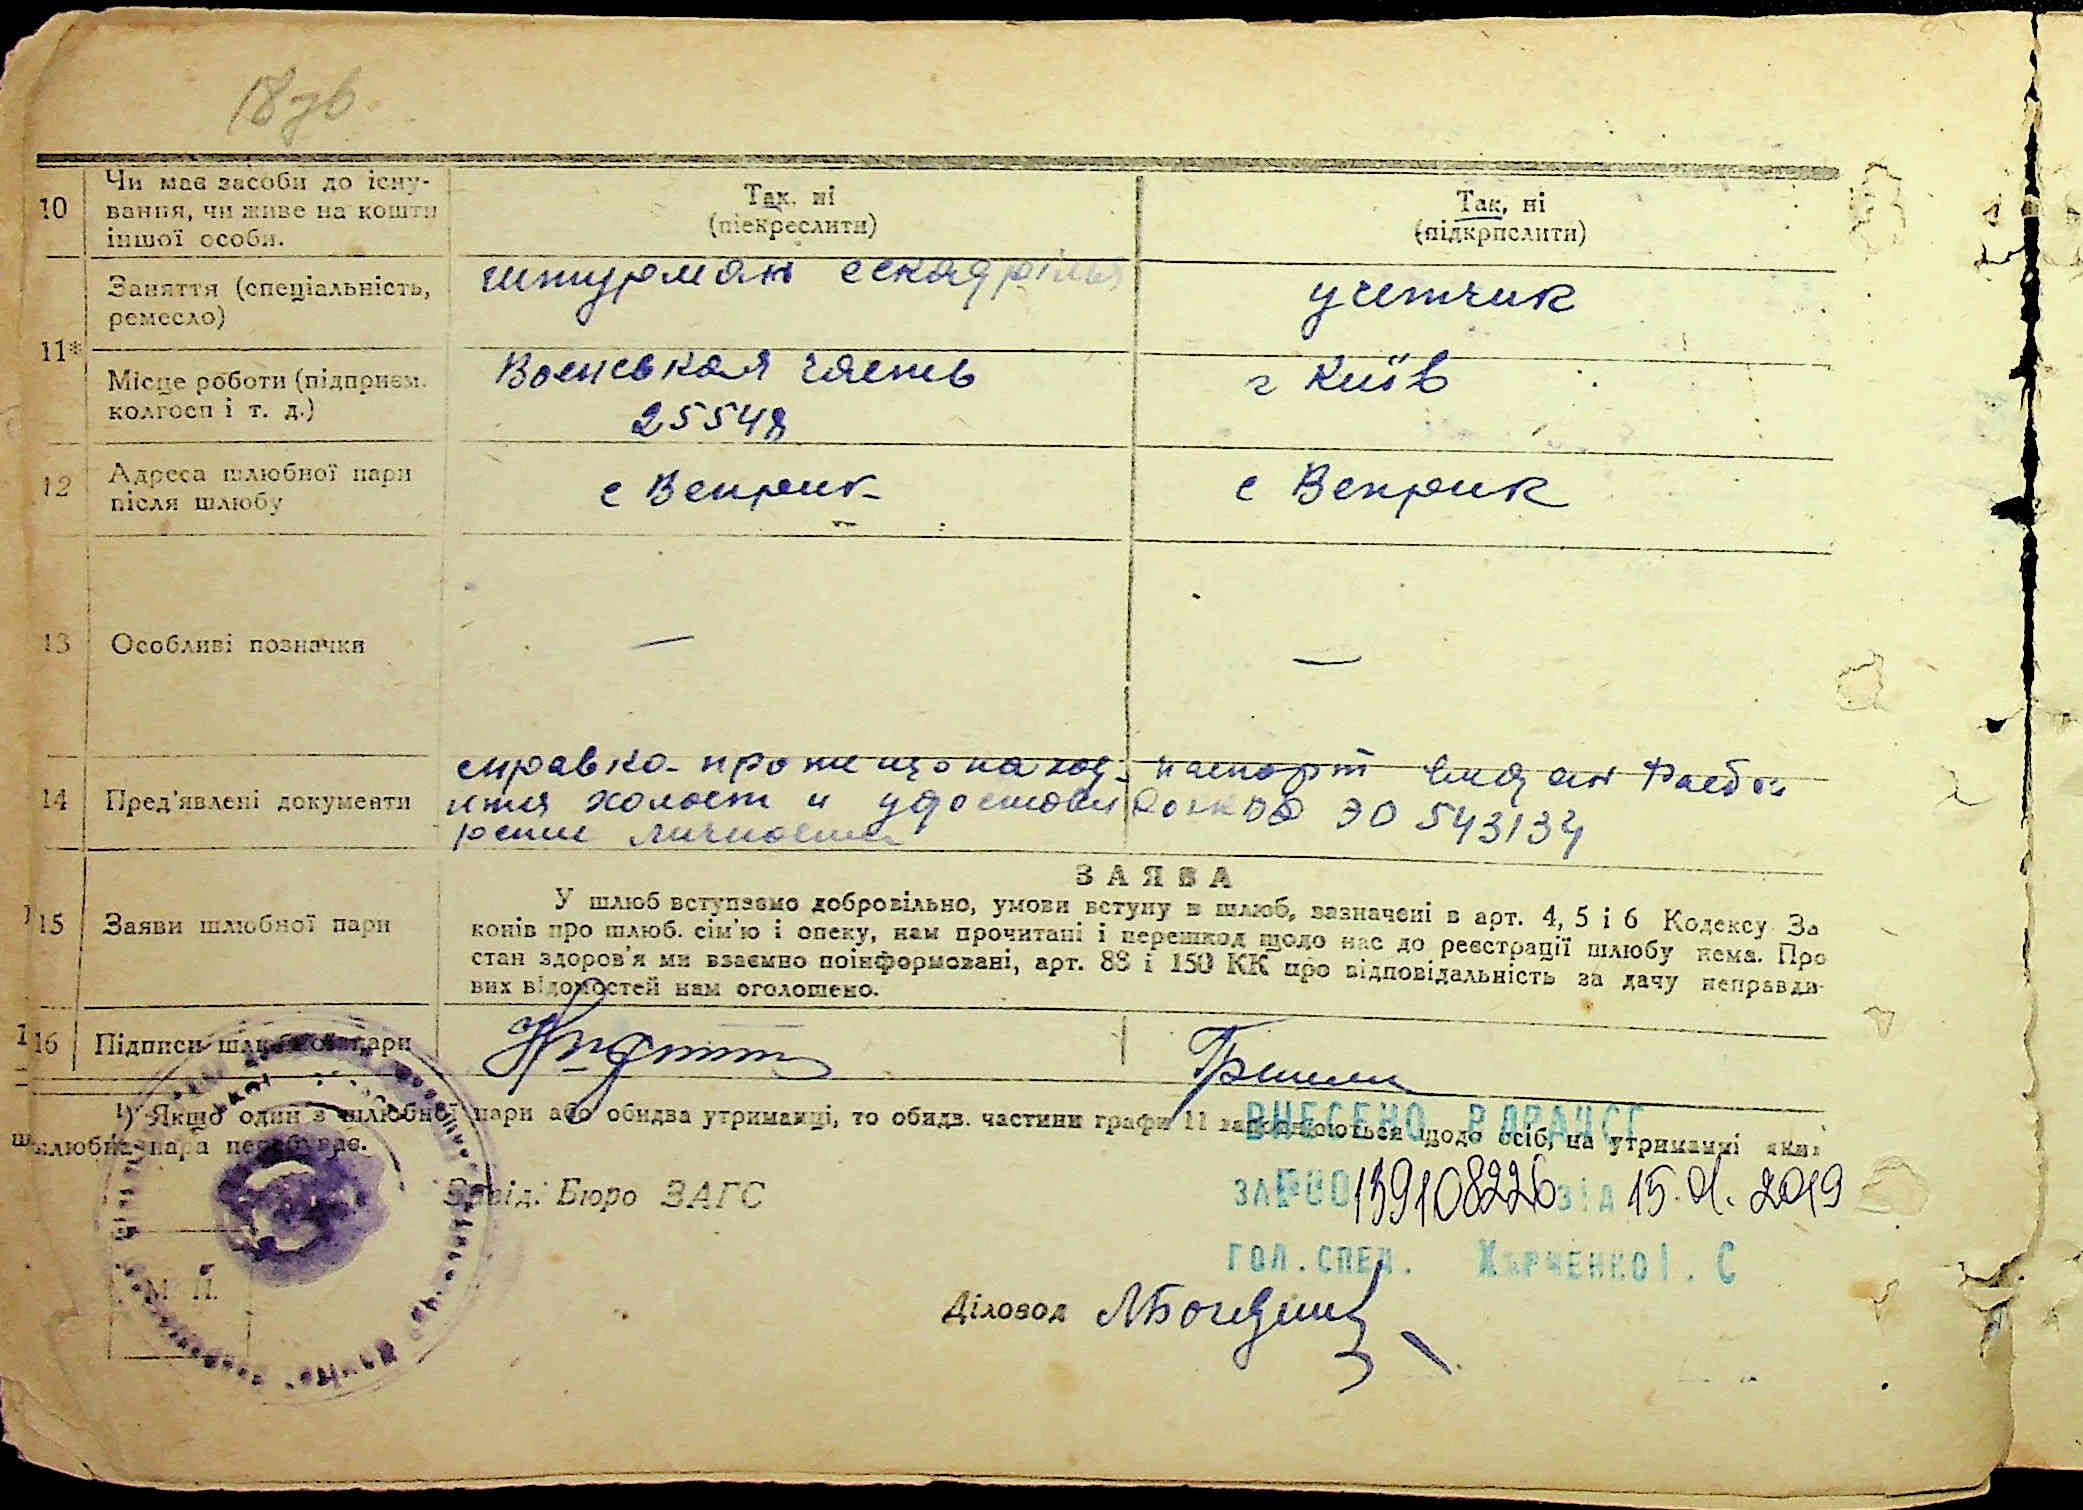 18зв
10
Чи має засоби до існу-
вання, чи живе на кошти
іншої особи.
Так, ні
(підкреслити)
Так, ні
(підкрпслити)
11*
Заняття (спеціальність,
ремесло)
штурман ескадрільи
учетчик
Місце роботи (підприєм.
колгосп і т. д.)
Воинськая часть
25548
г Київ
12
Адреса шлюбної пари
після шлюбу
с Веприк
с Веприк
13
Особливі позначки
—
—
14
Пред'явлені документи
справка
холост и удостове
рение личности
паспорт видан
ЭО 543134
15
Заяви шлюбної пари
ЗАЯВА
У шлюб вступаємо добровільно, умови вступу в шлюб, зазначені в арт. 4, 5 і 6 Кодексу За
конів про шлюб. сім'ю і опеку, нам прочитані і перешкод щодо нас до реєстрації шлюбу нема. Про
стан здоров'я ми взаємно поінформовані, арт. 88 і 150 КК про відповідальність за дачу неправди-
вих відомостей нам оголошено.
16
Підписи шлюбної пари
¹) Якщо один з шлюбної пари або обидва утриманці, то обидв. частини графи 11 заповнюються щодо осіб, на утриманні яких
шлюбна пара перебуває.
ВНЕСЕНО В ДРАЦСГ
ЗА 00139108226 ВІД 15.01.2019
ГОЛ.СПЕЦ. ХАРЧЕНКО І.С
Завід. Бюро ЗАГС
М. П.
Діловод